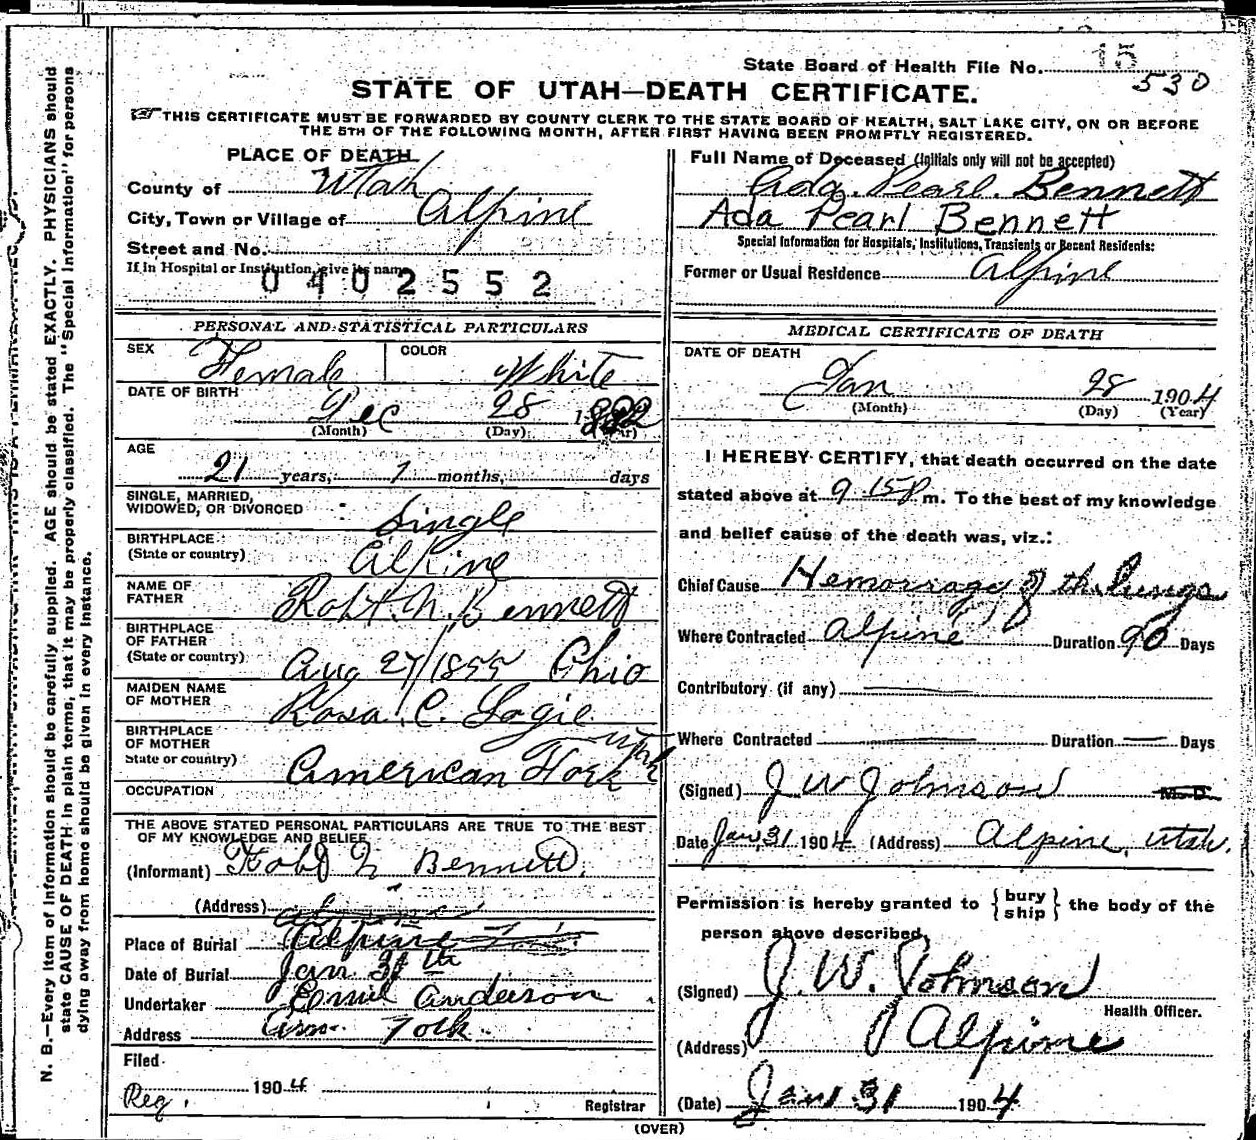 State Board of Health File No. 15
530
STATE OF UTAH—DEATH CERTIFICATE.
THIS CERTIFICATE MUST BE FORWARDED BY COUNTY CLERK TO THE STATE BOARD OF HEALTH, SALT LAKE CITY, ON OR BEFORE
THE 5TH OF THE FOLLOWING MONTH, AFTER FIRST HAVING BEEN PROMPTLY REGISTERED.
PLACE OF DEATH
County of Utah
City, Town or Village of Alpine
Street and No.
If in Hospital or Institution, give its name
0402552
PERSONAL AND STATISTICAL PARTICULARS
SEX Female COLOR White
DATE OF BIRTH
Dec 28 1882
(Month) (Day)
AGE
21 years, 1 months, days
SINGLE, MARRIED,
WIDOWED, OR DIVORCED Single
BIRTHPLACE
(State or country) Alpine
NAME OF
FATHER Robt. N. Bennett
BIRTHPLACE
OF FATHER
(State or country) Aug 27/1855 Ohio
MAIDEN NAME
OF MOTHER Rosa C. Logie
BIRTHPLACE
OF MOTHER
State or country) American Fork Utah
OCCUPATION
THE ABOVE STATED PERSONAL PARTICULARS ARE TRUE TO THE BEST
OF MY KNOWLEDGE AND BELIEF
(Informant) Robt N Bennett
(Address)
Place of Burial Alpine
Date of Burial Jan 31th
Undertaker Emil Anderson
Address Am. Fork
Filed
190 4
Reg. Registrar
Full Name of Deceased (Initials only will not be accepted)
Ada. Pearl. Bennett
Ada Pearl Bennett
Special Information for Hospitals, Institutions, Transients or Recent Residents:
Former or Usual Residence Alpine
MEDICAL CERTIFICATE OF DEATH
DATE OF DEATH
Jan 28 1904
(Month) (Day) (Year)
I HEREBY CERTIFY, that death occurred on the date
stated above at 9 15 P m. To the best of my knowledge
and belief cause of the death was, viz.:
Chief Cause Hemorrage of the lungs
Where Contracted Alpine Duration 90 Days
Contributory (if any)
Where Contracted Duration Days
(Signed) J W Johnson M. D.
Date Jan 31 1904 (Address) Alpine, Utah.
Permission is hereby granted to {bury
ship} the body of the
person above described.
(Signed) J. W. Johnson
Health Officer.
(Address) Alpine
(Date) Jan 31 1904
(OVER)
N. B.—Every item of information should be carefully supplied. AGE should be stated EXACTLY. PHYSICIANS should
state CAUSE OF DEATH in plain terms, that it may be properly classified. The "Special Information" for persons
dying away from home should be given in every instance.